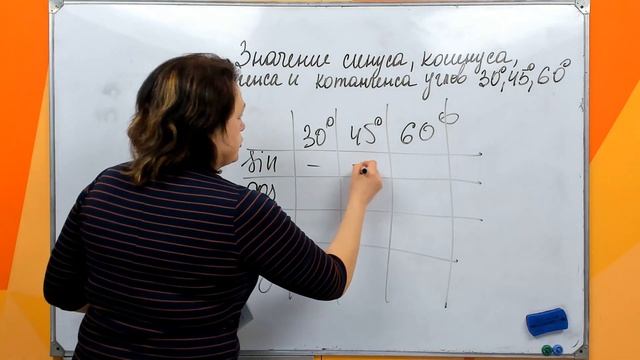 Значение синуса, косинуса,
и котангенса углов 30°, 45°, 60°
30° 45° 60°
sin –
cos